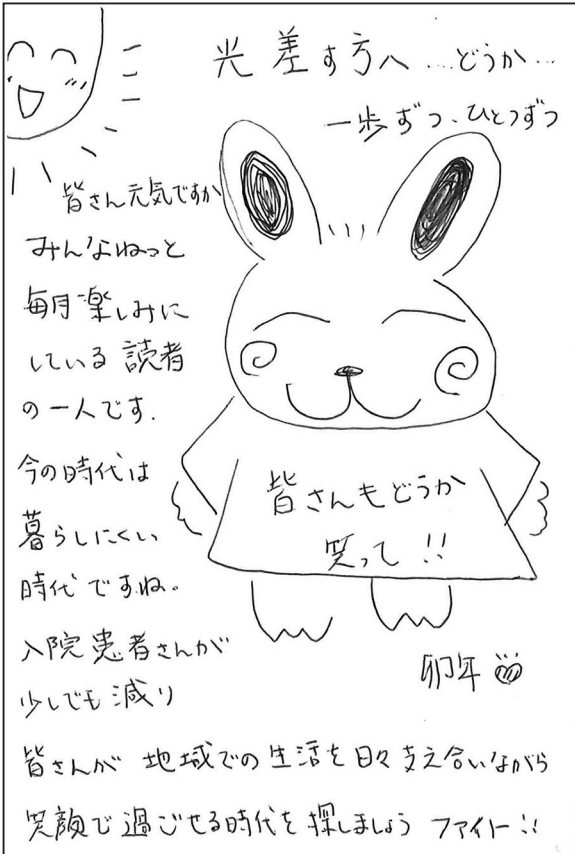 光差す方へ…どうか…
一歩ずつ、ひとつずつ
皆さん元気ですか
みんなねっと
毎月楽しみに
している読者
の一人です.
今の時代は
暮らしにくい
時代ですね。
入院患者さんが
少しでも減り
皆さんが地域での生活を日々支え合いながら
笑顔で過ごせる時代を探しましょう ファイト!!
皆さんもどうか
笑って!!
卯年